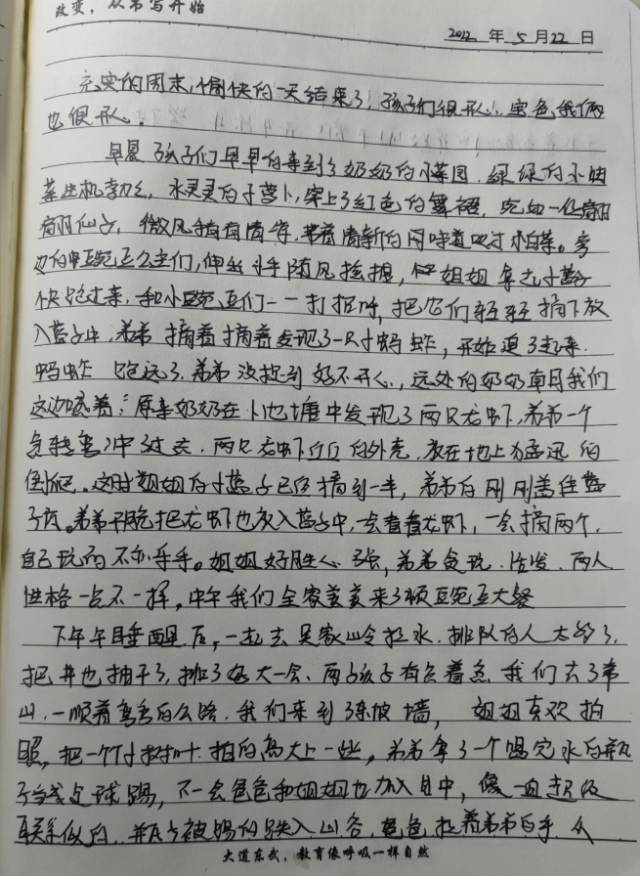 改变，从书写开始
2022 年 5 月 22 日
充实的周末，愉快的一天结束了，孩子们很开心，宝爸我俩
也很开心。
早晨孩子们早早的来到了奶奶的小菜园，绿绿的小油
菜生机勃勃，水灵灵的小萝卜，穿上了红色的舞裙，宛如一位翩
翩仙子，微风稍有清存，带着清新的风味道吹过小白菜。旁
边的豌豆公主们，伸出小手随风摇摆，姐姐拿起小篮子
快跑过来，和小豌豆们一一打招呼，把它们轻轻摘下放
入篮子中，弟弟摘着摘着发现了一只小蚂蚱，开始追了起来
蚂蚱跑远了，弟弟没捉到好不开心，远处的奶奶向我们
这边喊着：原来奶奶在小池塘中发现了两只龙虾，弟弟一个
急转弯冲过去，两只龙虾的外壳，放在地上迅的
倒爬。这时姐姐的小篮子已经摘到一半，弟弟的刚刚盖住篮
子底。弟弟干脆把龙虾也放入篮子中，一会看看龙虾，一会摘两个，
自己玩的不亦乐乎。姐姐好胜心强，弟弟贪玩、活发，两人
性格一点不一样，中午我们全家美美来了顿豌豆大餐
下午午睡醒后，一起去吴家岭拉水，排队的人太多了，
把井也抽干了，排了好大一会、两个孩子有点着急，我们去了常
山，一顺着弯弯的公路，我们来到了涂坡墙， 姐姐喜欢拍
照，把一个个小树叶拍的高大上一些，弟弟拿了一个喝完水的瓶
子当成足球踢，不一会爸爸和姐姐也加入其中，像一直超级
联系似的，瓶子被踢的跌入山谷，爸爸拉着弟弟的手，从
大道东武，教育像呼吸一样自然